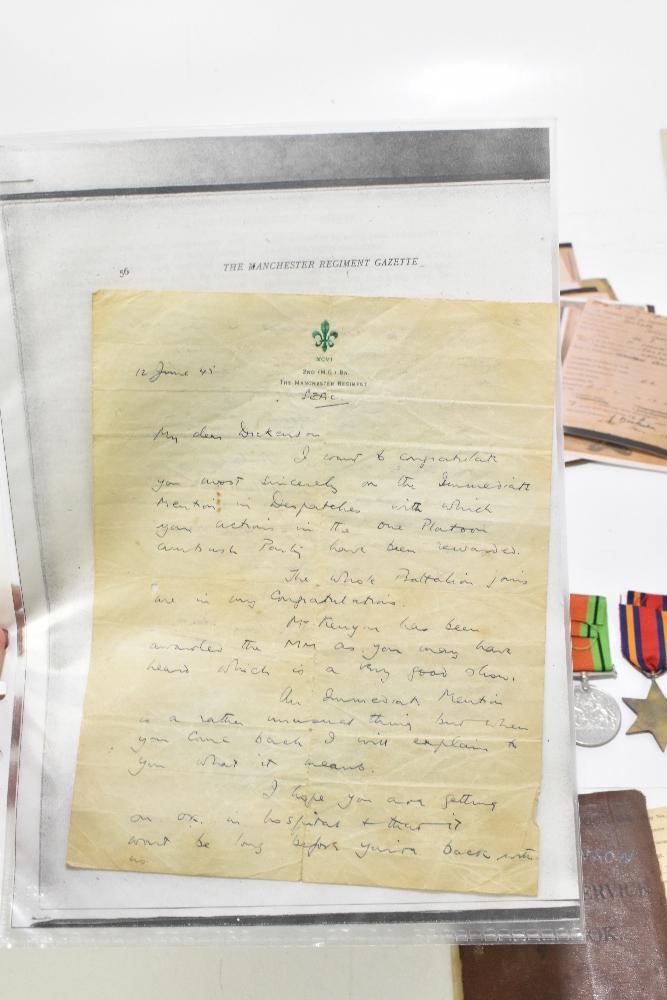 56
THE MANCHESTER REGIMENT GAZETTE
XCVI
2ND (M.G.) BN.
THE MANCHESTER REGIMENT
SEAC
12 June 45
My dear Dickenson
I want to congratulate
you most sincerely on the Immediate
Mention in Despatches with which
your actions in the one Platoon
ambush Party have been rewarded.
The whole Battalion joins
me in my Congratulations.
McKenyon has been
awarded the MM as you may have
heard which is a very good show.
An Immediate Mention
is a rather unusual thing but when
you come back I will explain to
you what it means.
I hope you are getting
on ok. in hospital & that it
wont be long before you're back with
us.
SON
SERVICE
OOK